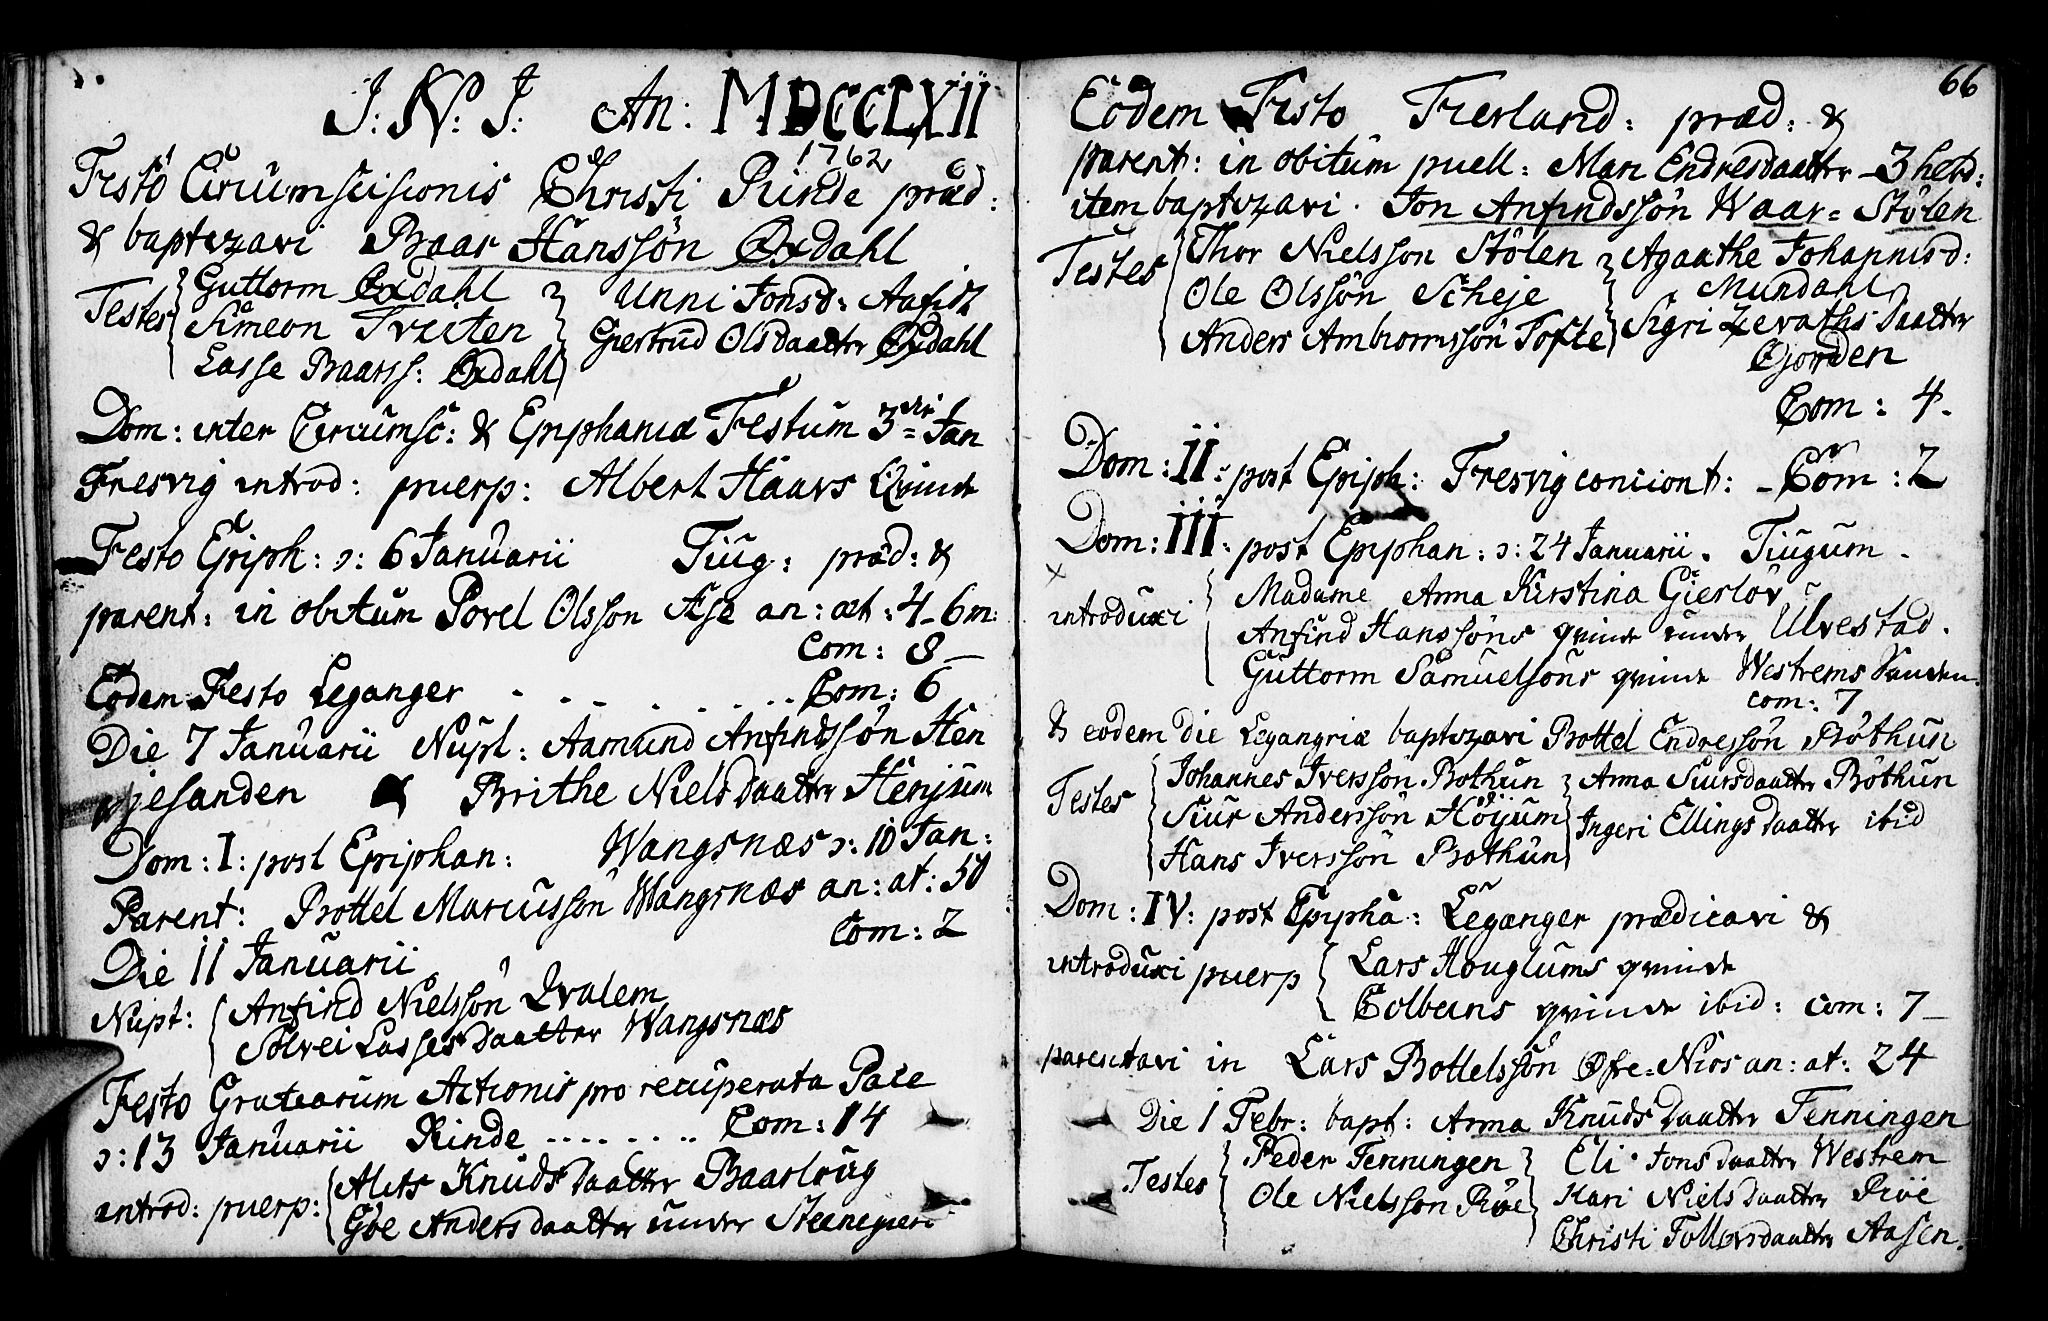 J: N: J: An: MDCCLXII
1762
Festo Circumscisionis Christi Rinde præd:
& baptizavi Baar Hanssön Øxdahl
Testes Guttorm Øxdahl Unni Jonsd:
Simeon Tveiten Giertrud Olsdaatter Øxdahl
Lasse Baarss: Øxdahl
Dom: inter Circumsc: & Epiphaniæ Festum 3 Jan
Fresvig introd: puerp: Albert Haavs Qvinde
Festo Epiph: ɔ: 6 Januarii Tiug: præd: &
parent: in obitum Povel Olsson Æse an: æt: 4-6m:
Com: 8
Eodem Festo Leganger - - - - - - - - Com: 6
Die 7 Januarii Nupt: Aamund Anfindssön Hen
jesanden & Brithe Nielsdaatter Henjum
Dom: I: post Epiphan: Wangsnæs ɔ: 10 Jan:
Parent: Bottel Marcussön Wangsnæs an: æt: 50
Com: 2
Die 11 Januarii
Nupt: Anfind Nielssön Qvalem
Sölvei Lassesdaatter Wangsnæs
Festo Gratiarum Actionis pro recuperata Pace
ɔ: 13 Januarii Rinde ........ Com: 14
introd: puerp: Alets Knudsdaatter Baarlöug
Göe Andersdaatter under
66
Eodem Festo Fierland: præd: &
parent: in obitum puell: Mari Endresdaatter - 3 hebd:
item baptizavi. Jon Anfindssön Waar= Stölen
Testes Thor Nielsson Stölen Agaathe Johannisd:
Ole Olssön Scheje Mundahl
Anders Ambiornssön Tofte Sigri Zevathis daatter
Gjorden
Com: 4.
Dom: II: post Epiph: Fresvig conciont: - Com: 2
Dom: III: post Epiphan: ɔ: 24 Januarii. Tiugum.
introduxi Madame Anna Kirstina Gierlöv
Anfind Hanssöns qvinde under Ulvestad.
Guttorm Samuelsöns qvinde Westrems Sanden.
com: 7
& eodem die Legangriæ baptizavi Bottel Endressön Böthun
Testes Johannes Iverssön Bothun Anna Siursdaatter Böthun
Siur Anderssön Höyum Ingeri Ellingsdaatter ibid
Hans Iverssön Bothun
Dom: IV: post Epipha: Leganger prædicavi &
introduxi puerp Lars Houglums qvinde
Colbens qvinde ibid: com: 7
parentavi in Lars Bottelssön Øfre=Nios an: æt: 24
Die 1 Febr: bapt: Anna Knudsdaatter Fenningen
Testes Peder Fenningen Eli Jonsdaatter Westrem
Ole Nielsson Röe Kari Nielsdaatter Röe
Christi Follevsdaatter Aasen.